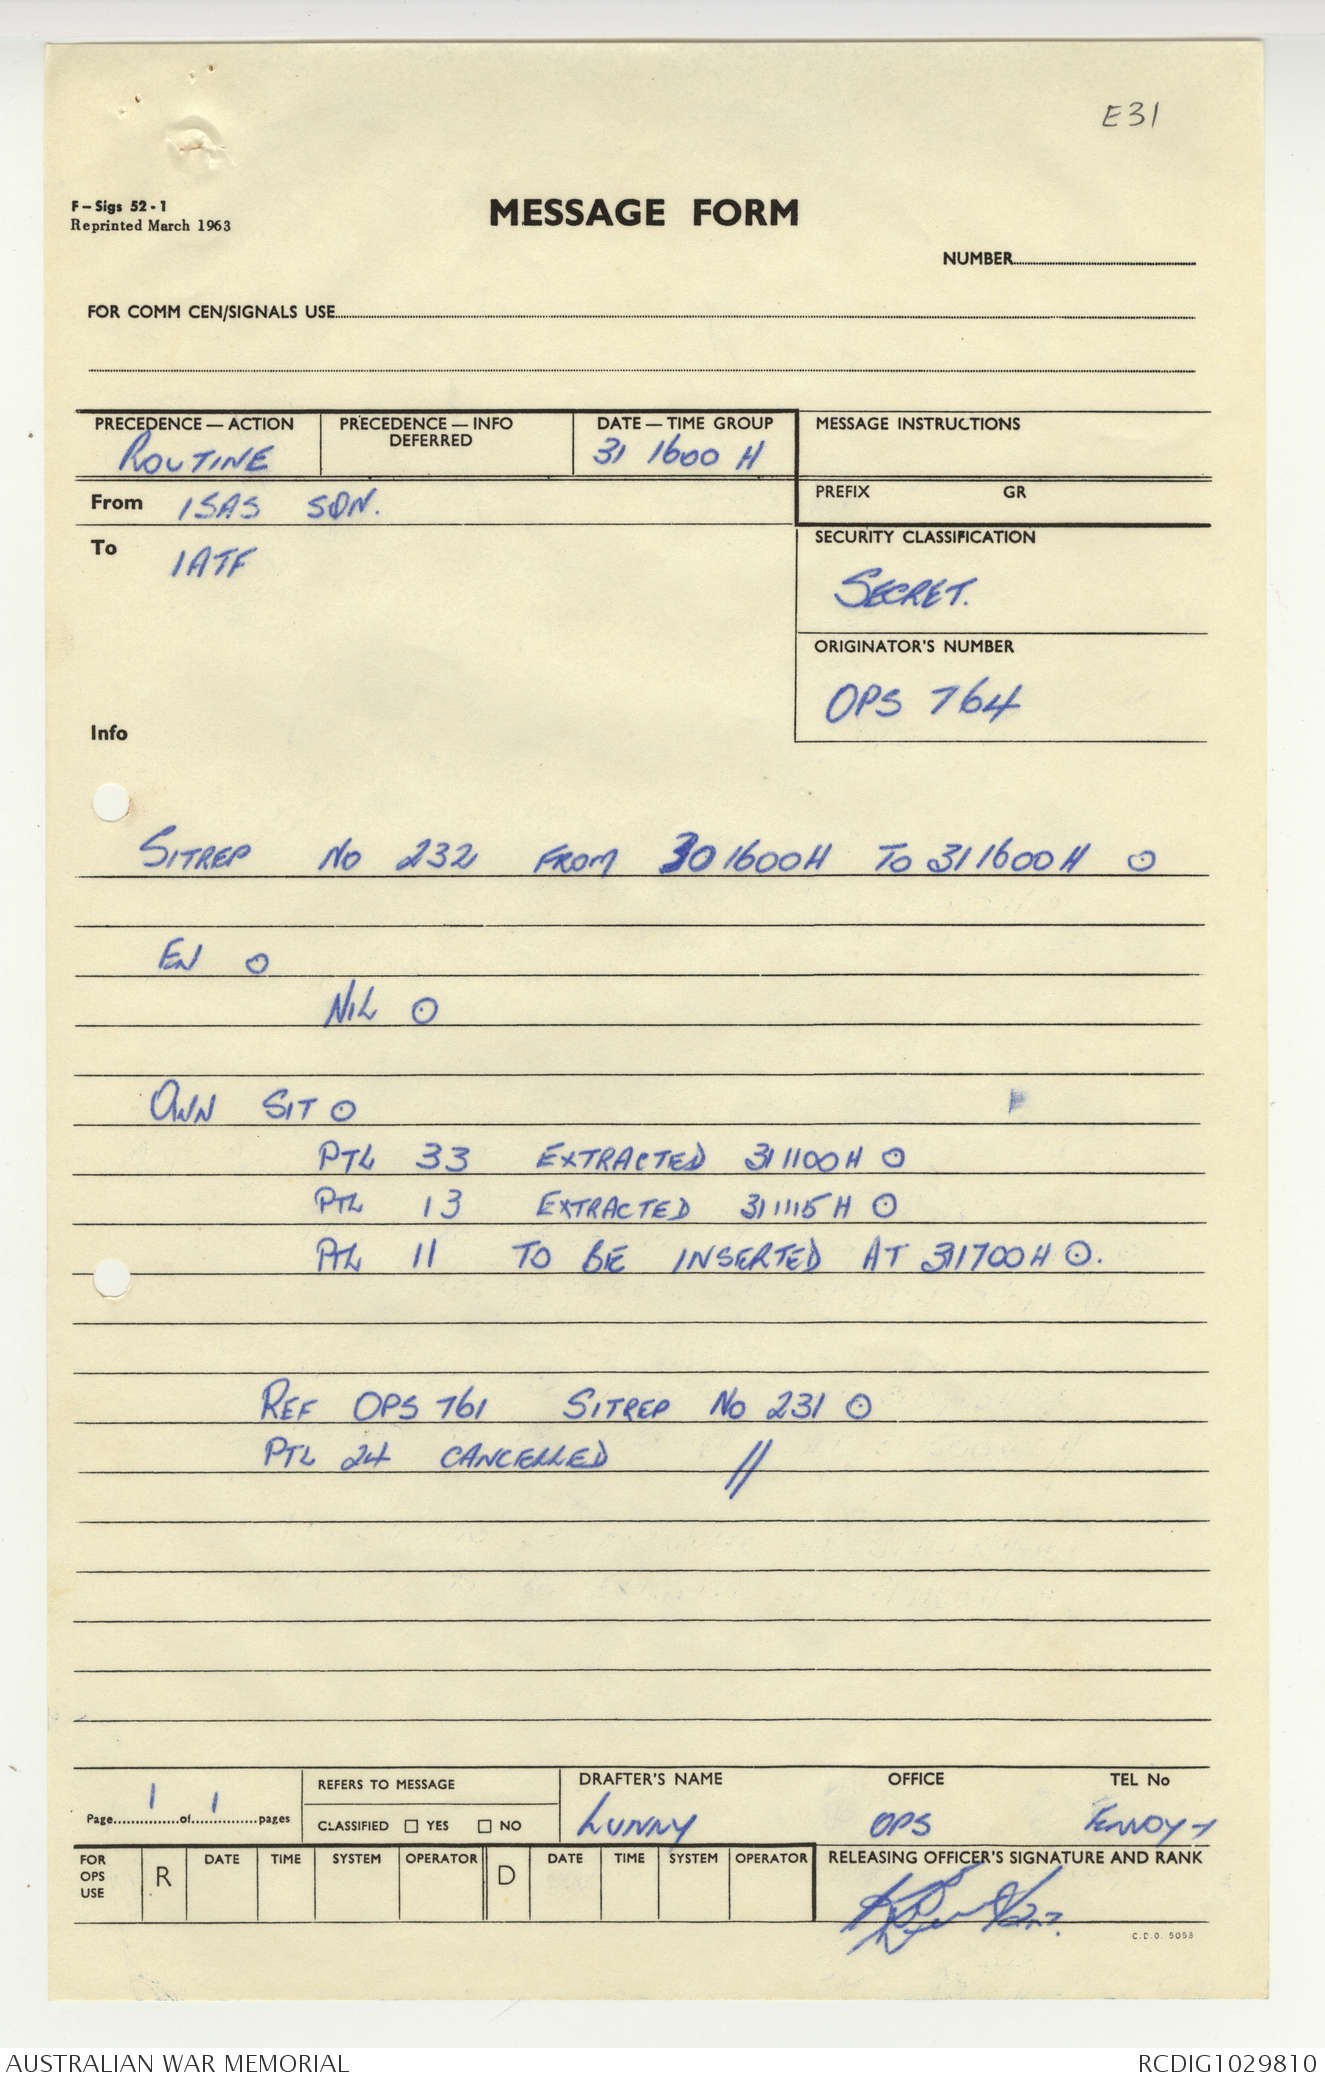 E31
F – Sigs 52 - 1
Reprinted March 1963
MESSAGE FORM
NUMBER
FOR COMM CEN/SIGNALS USE
PRECEDENCE — ACTION
ROUTINE
PRECEDENCE — INFO
DEFERRED
DATE — TIME GROUP
31 1600 H
MESSAGE INSTRUCTIONS
From 1SAS SQN.
PREFIX GR
To 1ATF
SECURITY CLASSIFICATION
SECRET.
ORIGINATOR'S NUMBER
OPS 764
Info
SITREP No 232 FROM 301600H TO 311600H ⊙
EN ⊙
NIL ⊙
OWN SIT ⊙
PTL 33 EXTRACTED 311100H ⊙
PTL 13 EXTRACTED 311115H ⊙
PTL 11 TO BE INSERTED AT 311700H ⊙.
REF OPS 761 SITREP No 231 ⊙
PTL 24 CANCELLED //
Page 1 of 1 pages
REFERS TO MESSAGE
CLASSIFIED □ YES □ NO
DRAFTER'S NAME
LUNNY
OFFICE
OPS
TEL No
FOR OPS USE
R DATE TIME SYSTEM OPERATOR D DATE TIME SYSTEM OPERATOR
RELEASING OFFICER'S SIGNATURE AND RANK
C.D.O. 5053
AUSTRALIAN WAR MEMORIAL
RCDIG1029810